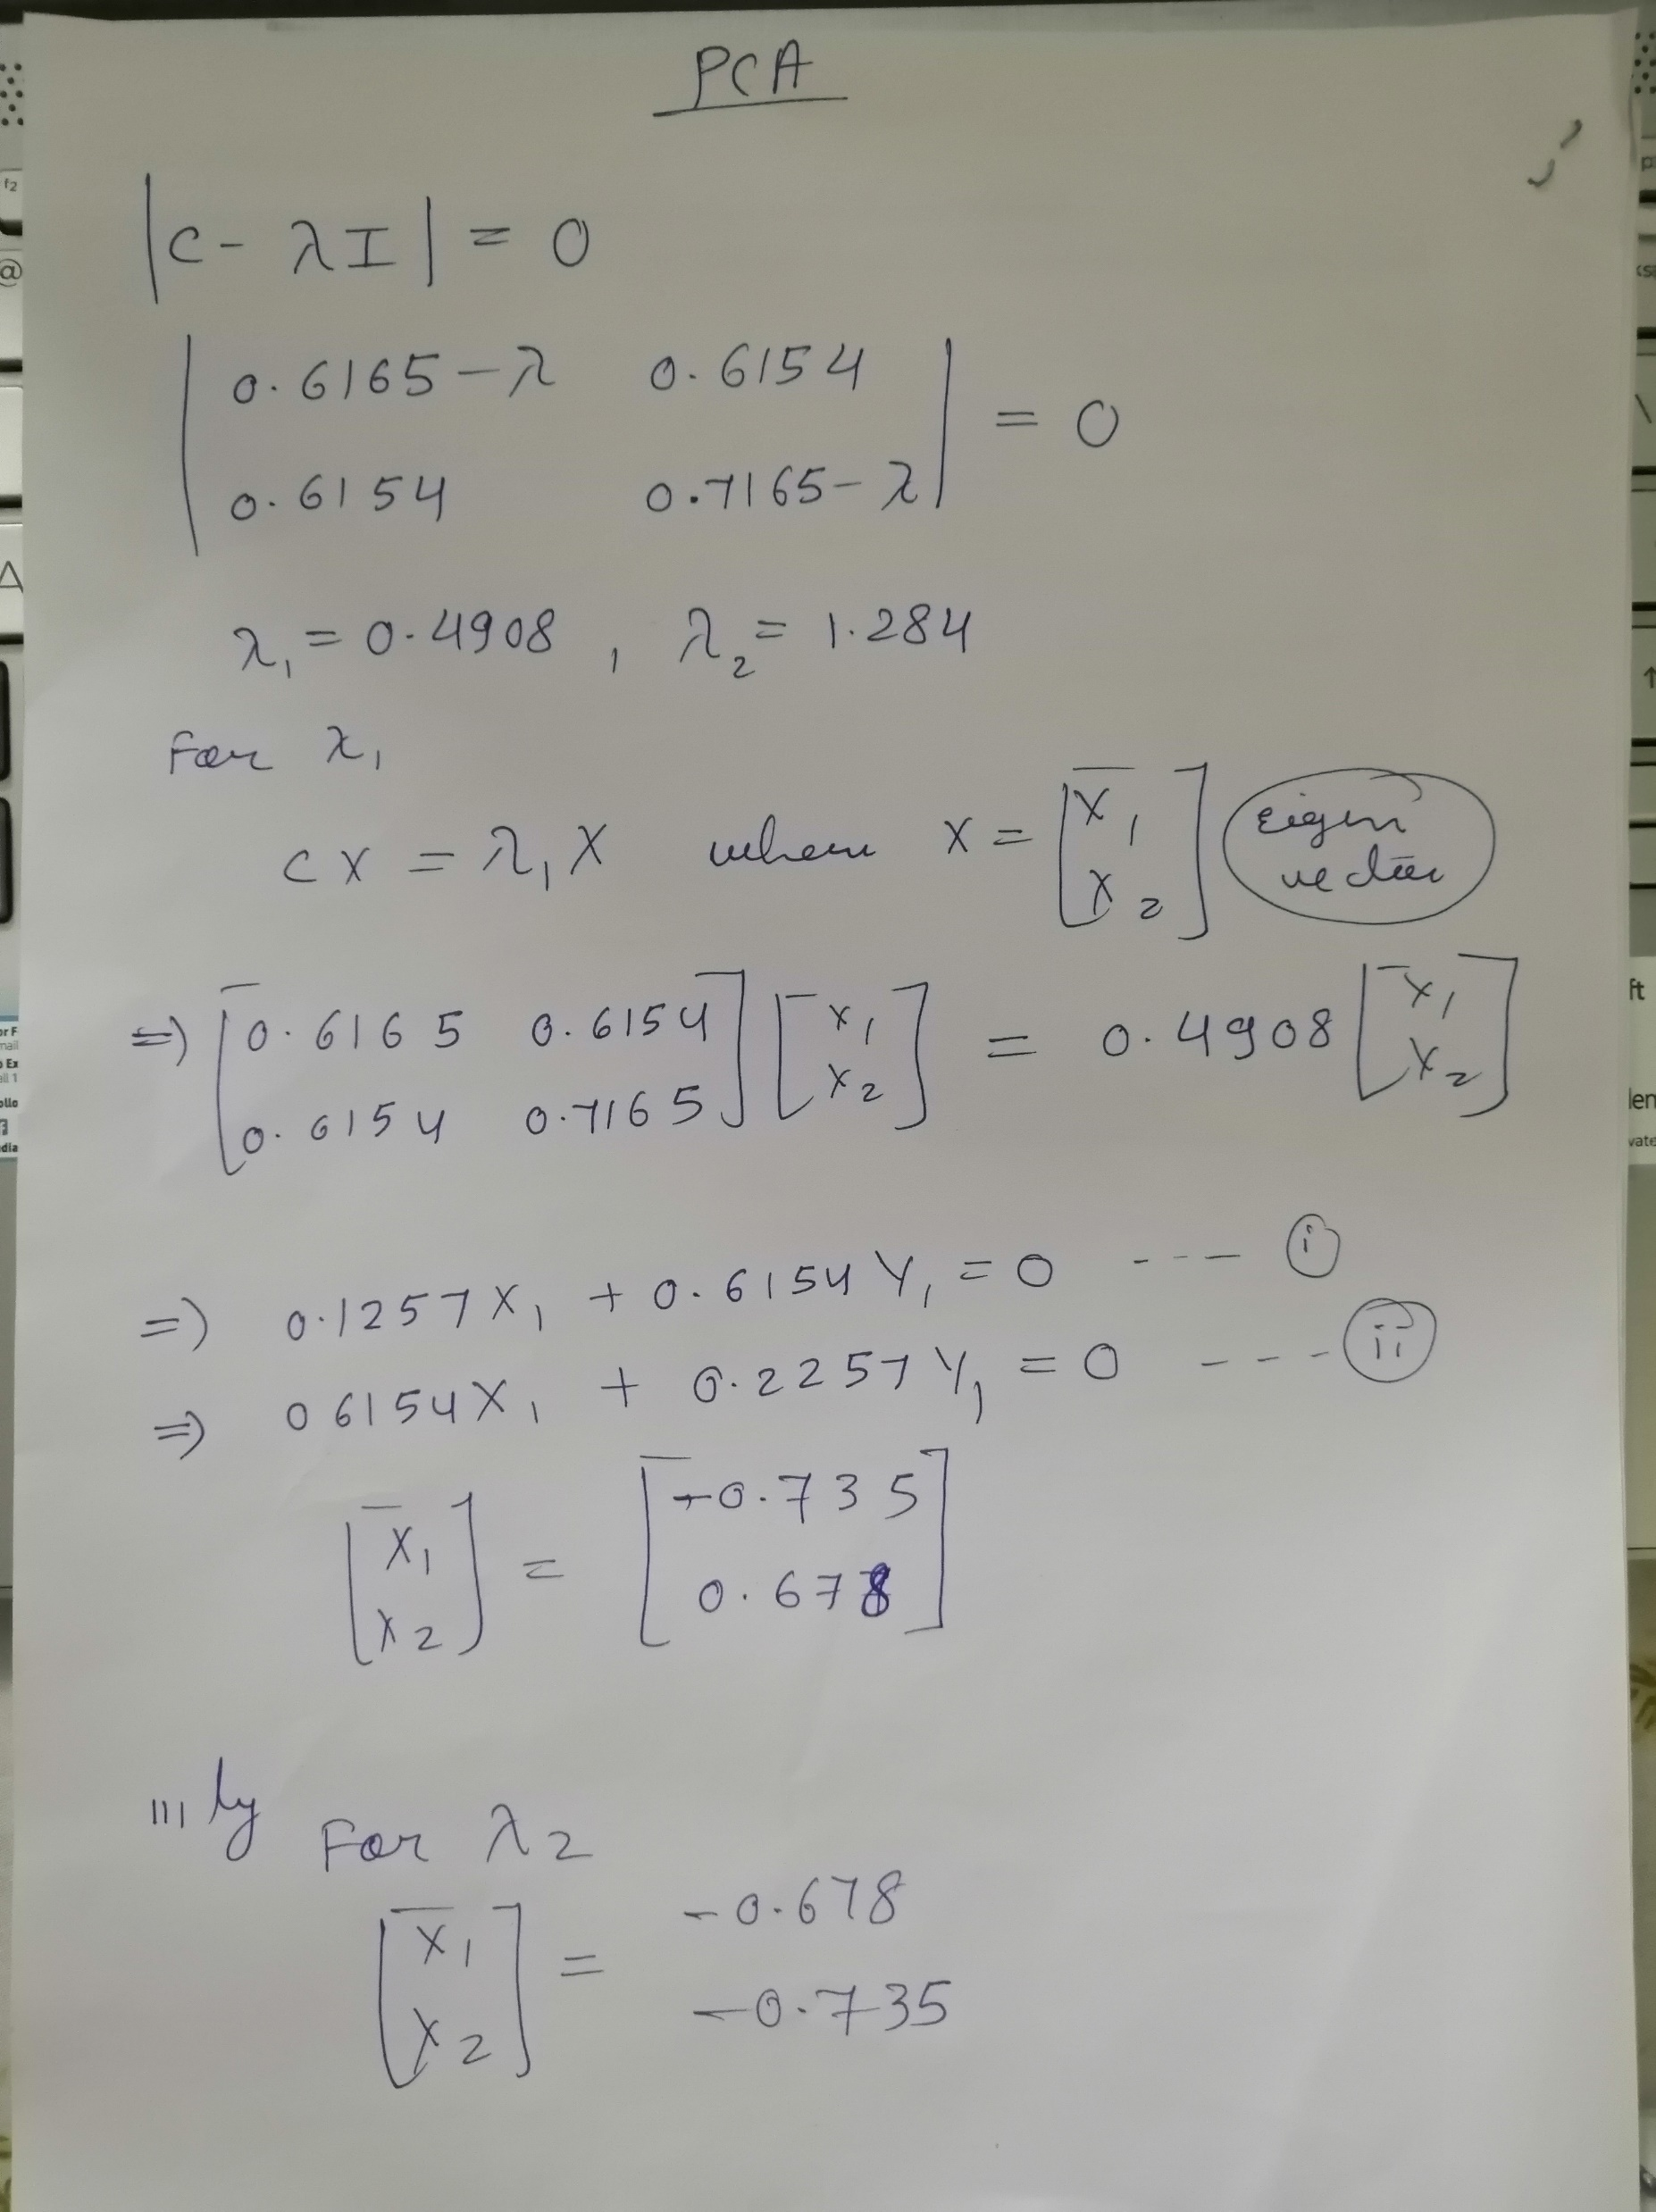 PCA
|C - λI| = 0
| 0.6165-λ 0.6154 |
| 0.6154 0.7165-λ | = 0
λ₁ = 0.4908 , λ₂ = 1.284
For λ₁
CX = λ₁X where X = [X₁ X₂] Eigen vector
=> [0.6165 0.6154] [X₁] = 0.4908 [X₁]
[0.6154 0.7165] [X₂] [X₂]
=> 0.1257X₁ + 0.6154Y₁ = 0 --- (i)
=> 0 6154X₁ + 0.2257Y₁ = 0 --- (ii)
[X₁] = [-0.735]
[X₂] [0.678]
lllly For λ₂
[X₁] = -0.678
[X₂] -0.735